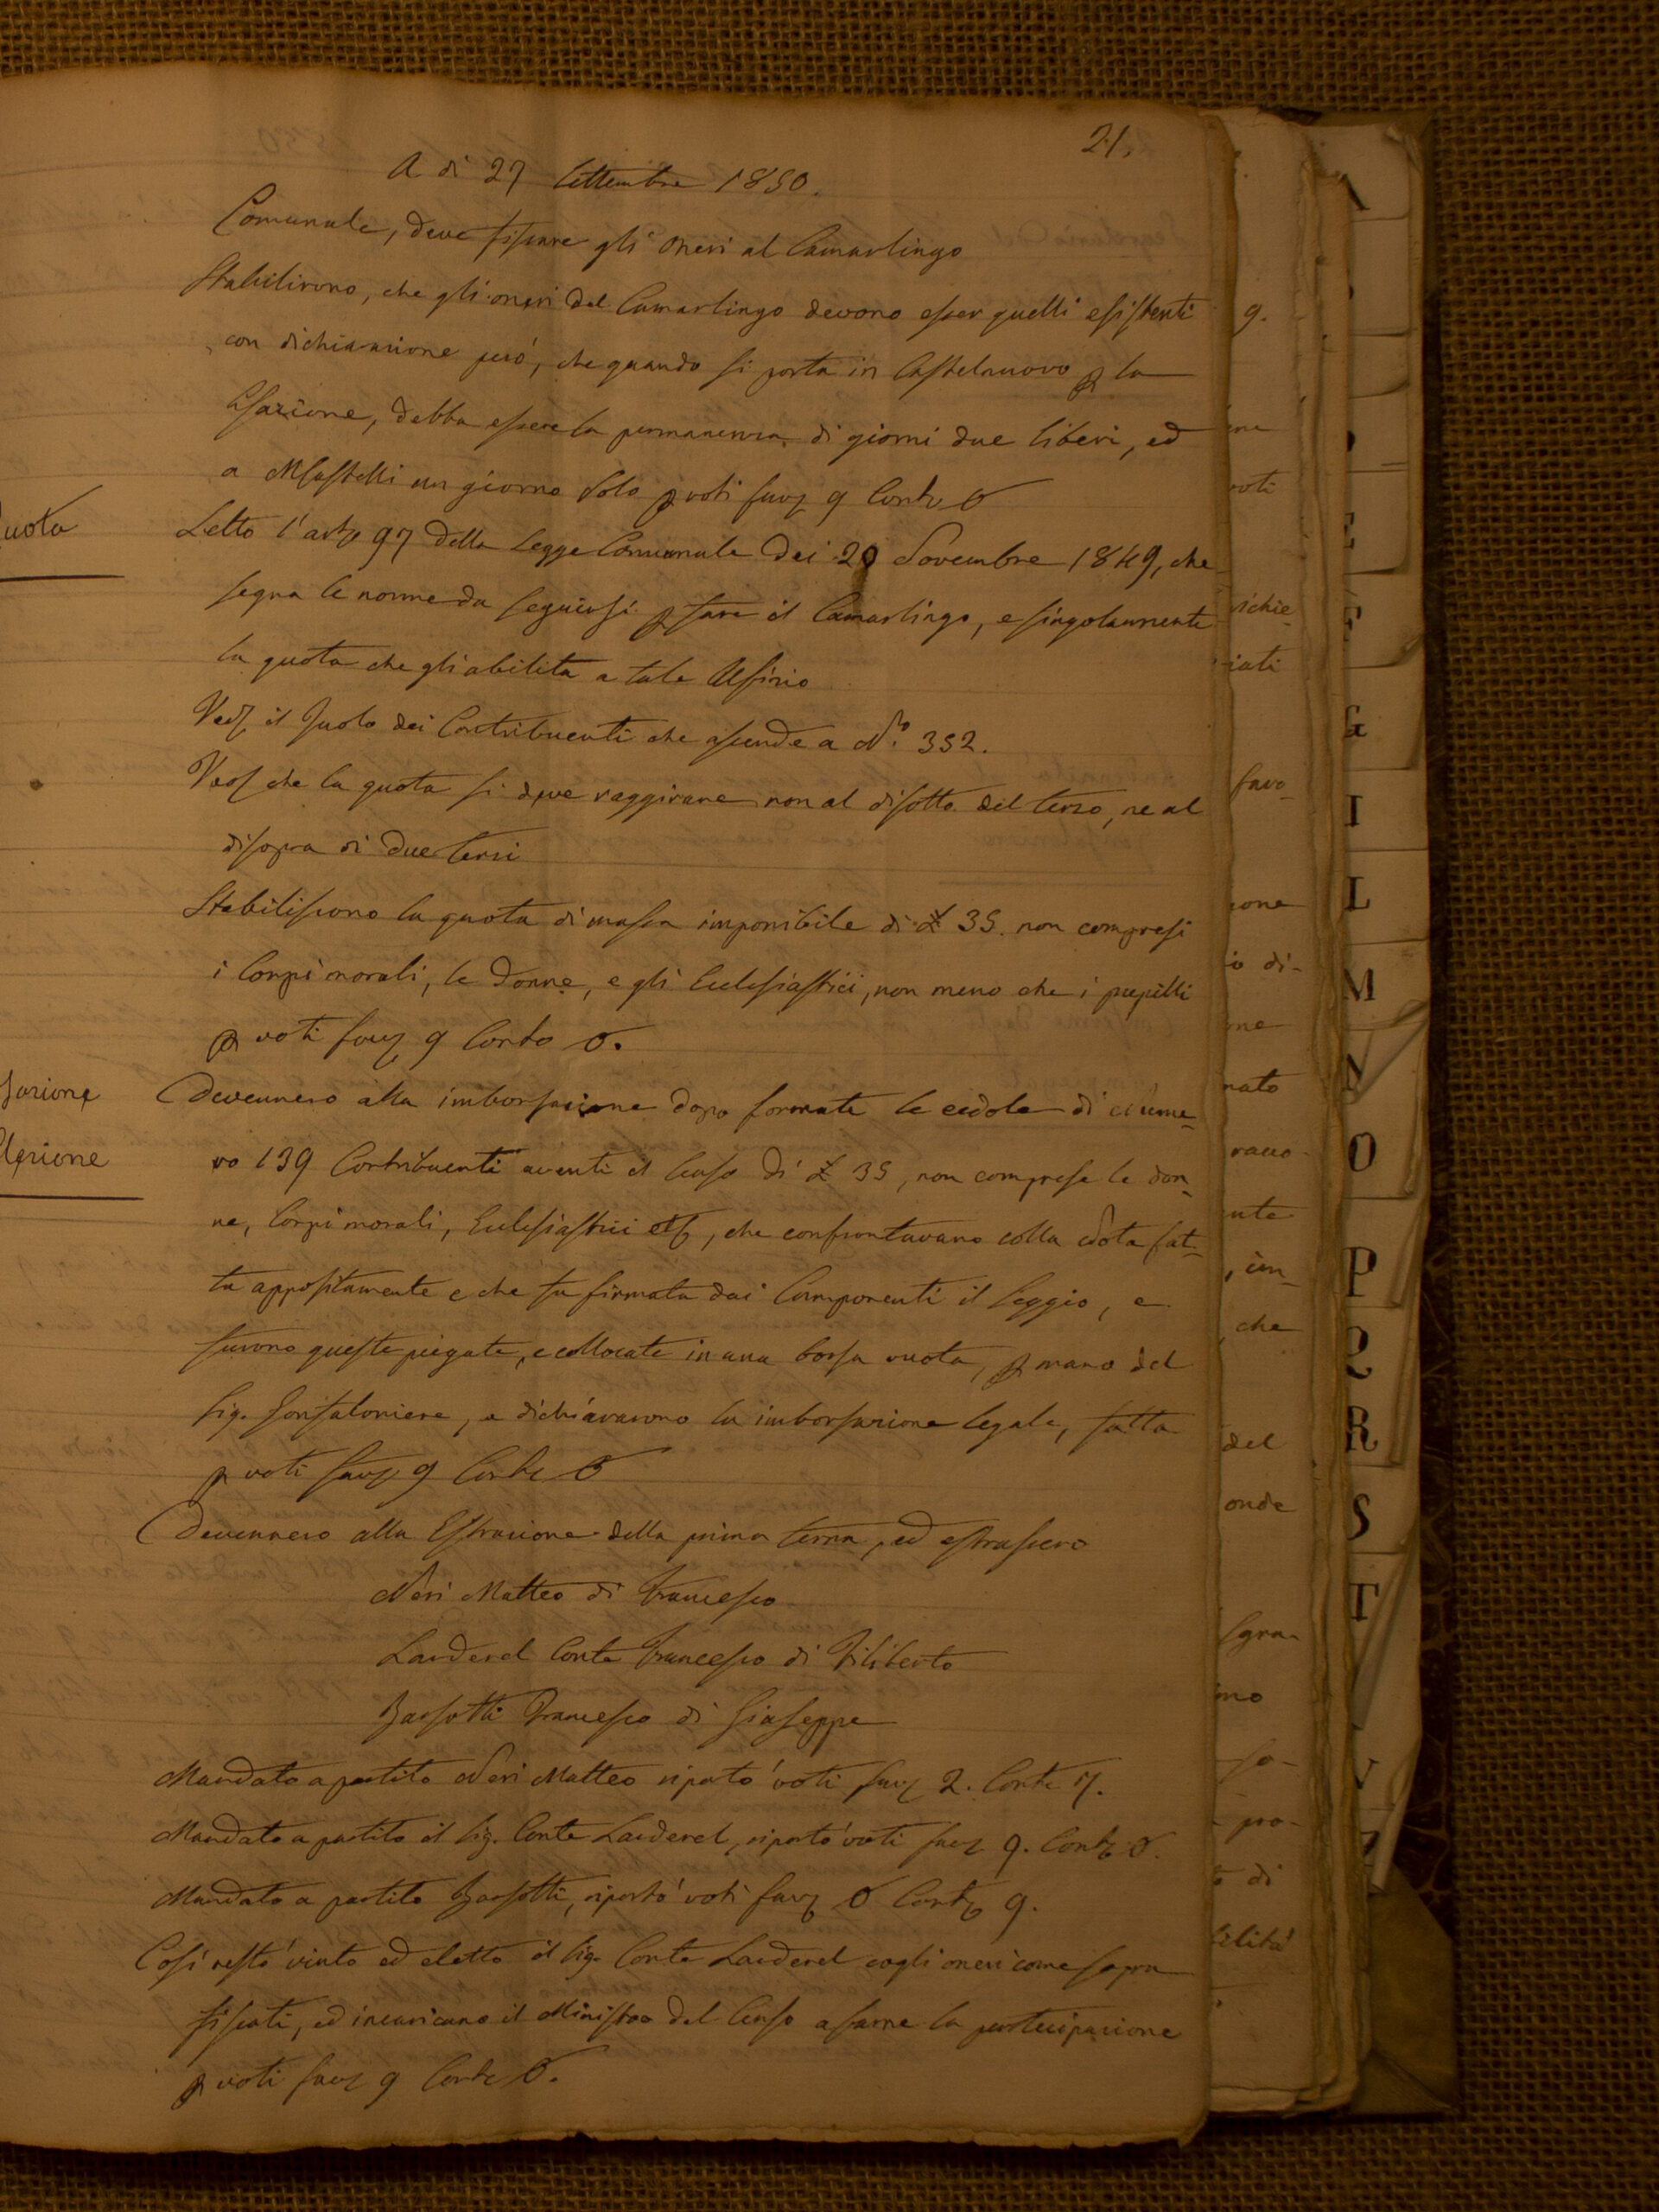 21.
A di 27 Settembre 1850.
Comunale, deve fissare gli oneri al Camarlingo
Stabilirono, che gli oneri del Camarlingo devono esser quelli esistenti
con dichiarazione però, che quando si porta in Castelnuovo p la
Esazione, debba essere la permanenza di giorni due liberi, ed
a MCastelli un giorno Solo p voti fav 9 Contr 0
Quota
Letto l'art 97 della Legge Comunale dei 20 Novembre 1849, che
segna le norme da seguirsi p fare il Camarlingo, e singolarmente
la quota che gli abilita a tale Ufizio
Ved il Ruolo dei Contribuenti che ascende a No. 352.
Ved che la quota si deve raggirare non al disotto del terzo, ne al
disopra di due terzi
Stabiliscono la quota di massa imponibile di £ 35. non compresi
i Corpi morali, le Donne, e gli Ecclesiastici, non meno che i pupilli
p voti fav 9 Contro 0.
sazione
Elezione
Devennero alla imborsazione dopo formate le cedole di Nume-
ro 139 Contribuenti aventi il Censo di £ 35, non comprese le don-
ne, Corpi morali, Eclesiastici etc, che confrontavano colla Nota fat-
ta appositamente e che fu firmata dai Componenti il Seggio, e
furono queste piegate, e collocate in una borsa vuota, p mano del
Sig. Gonfaloniere, e dichiararono la imborsazione legale, fatta
p voti fav 9 Contr 0
Devennero alla Estrazione della prima terna, ed estrassero
Neri Matteo di Francesco
Larderel Conte Francesco di Filiberto
Barsotti Francesco di Giuseppe
Mandato a partito Neri Matteo riportò voti fav 2. Contr 7.
Mandato a partito il Sig. Conte Larderel, riportò voti fav 9. Contr 0.
Mandato a partito Barsotti, riportò voti fav 0 Contr 9.
Così restò vinto ed eletto il Sig. Conte Larderel cogli oneri come sopra
fissati, ed incaricano il Ministro del Censo a farne la partecipazione
p voti fav 9 Contr 0.
9.
voti
iati
favo-
zione
io di-
nato
, che
del
onde
- pro-
o di
bilità
E
F
G
I
L
M
N
O
P
Q
R
S
T
V
Z